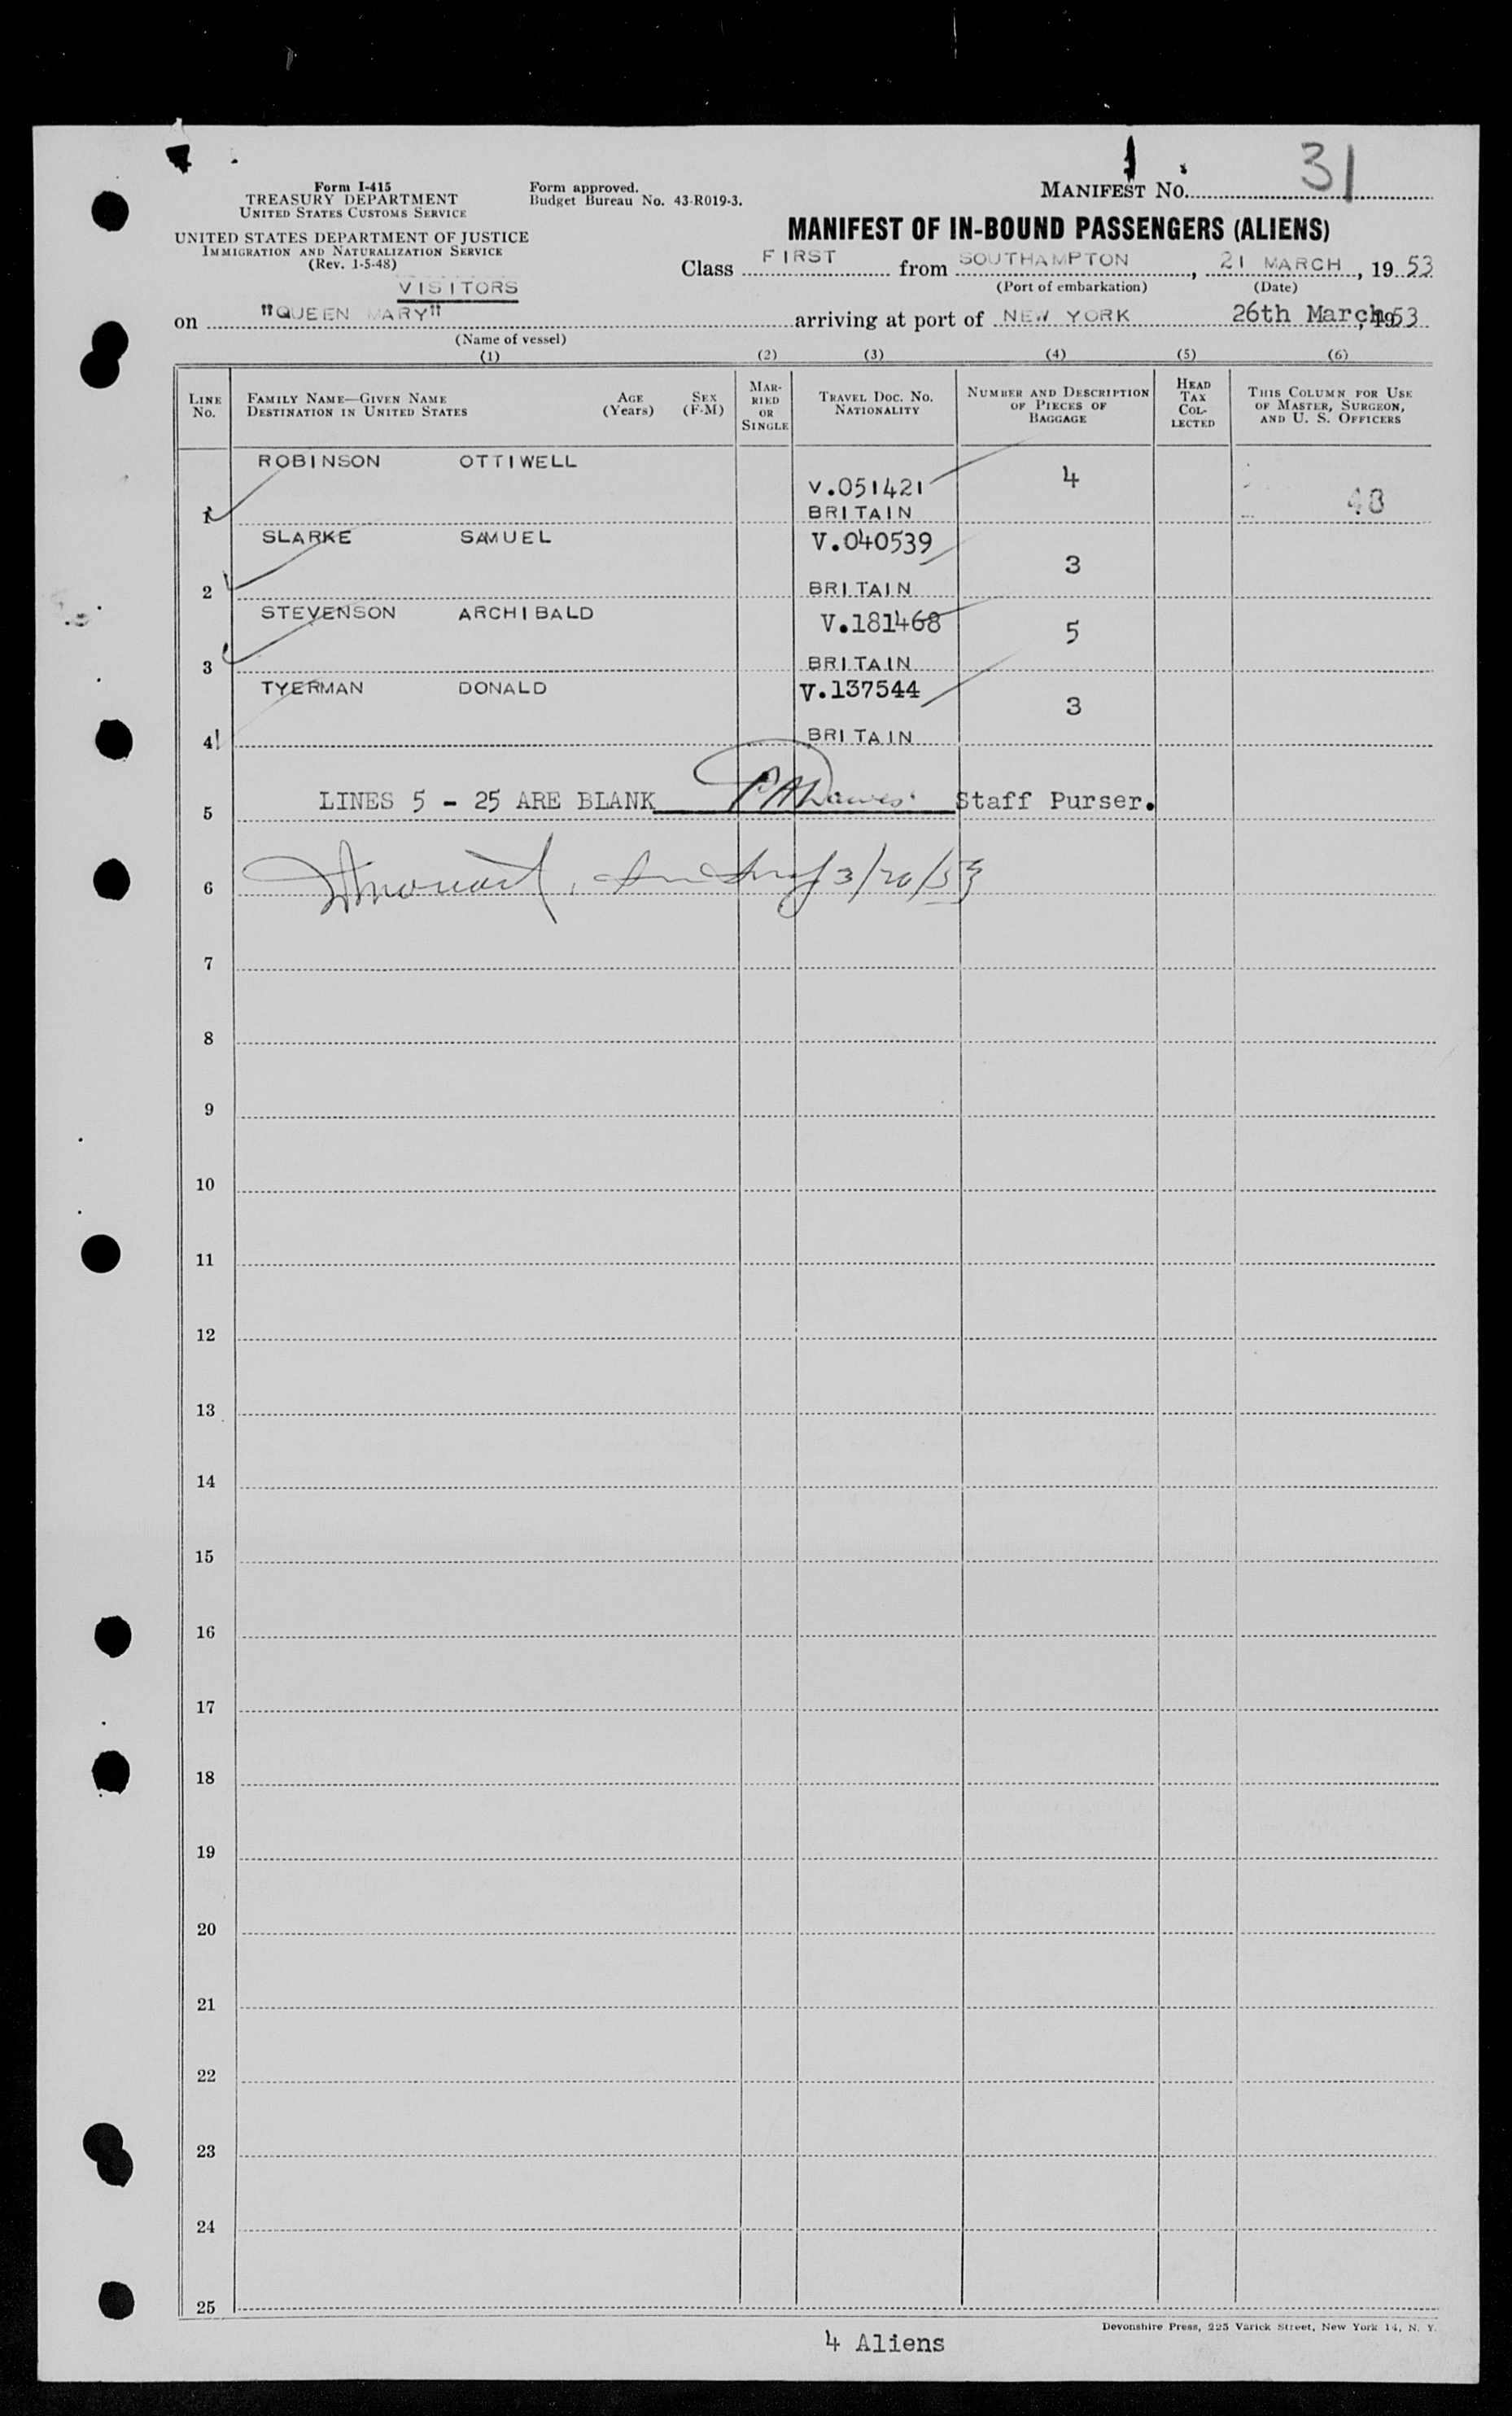 Form I-415
TREASURY DEPARTMENT
UNITED STATES CUSTOMS SERVICE
Form approved.
Budget Bureau No. 43-R019-3.
MANIFEST NO. 31
UNITED STATES DEPARTMENT OF JUSTICE
IMMIGRATION AND NATURALIZATION SERVICE
(Rev. 1-5-48)
MANIFEST OF IN-BOUND PASSENGERS (ALIENS)
Class FIRST from SOUTHAMPTON, 21 MARCH, 19 53
(Port of embarkation) (Date)
VISITORS
on "QUEEN MARY" arriving at port of NEW YORK 26th March, 1953
(Name of vessel)
(1) (2) (3) (4) (5) (6)
LINE No.
FAMILY NAME—GIVEN NAME
DESTINATION IN UNITED STATES
AGE (Years)
SEX (F-M)
MARRIED OR SINGLE
TRAVEL DOC. NO. NATIONALITY
NUMBER AND DESCRIPTION OF PIECES OF BAGGAGE
HEAD TAX COLLECTED
THIS COLUMN FOR USE OF MASTER, SURGEON, AND U. S. OFFICERS
ROBINSON OTTIWELL
V.051421 4
1 BRITAIN 48
SLARKE SAMUEL V.040539
3
2 BRITAIN
STEVENSON ARCHIBALD V.181468
5
3 BRITAIN
TYERMAN DONALD V.137544
3
4 BRITAIN
5 LINES 5 - 25 ARE BLANK Staff Purser.
6
7
8
9
10
11
12
13
14
15
16
17
18
19
20
21
22
23
24
25
Devonshire Press, 225 Varick Street, New York 14, N. Y.
4 Aliens